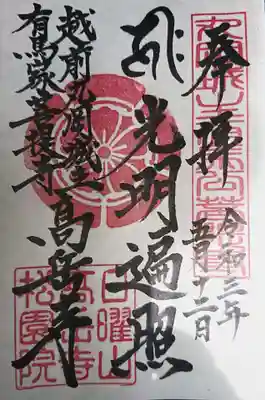 奉拝
令和三年
五月十二日
光明遍照
越前丸岡城主
有馬家菩提寺
高岳寺
高岳寺
松園院